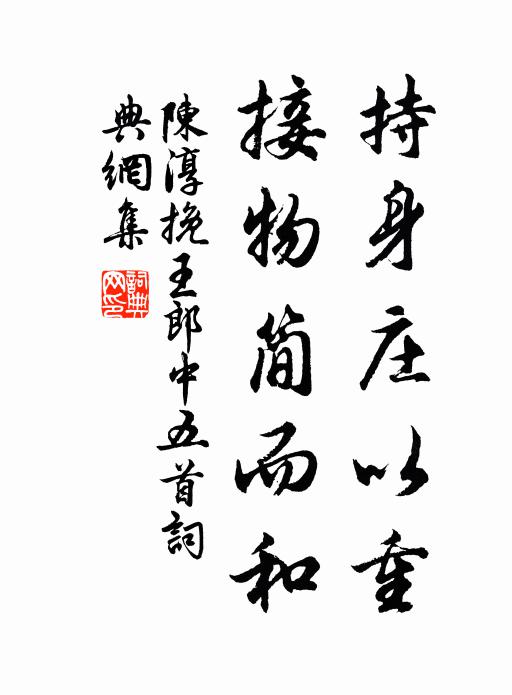 持身庄以重
接物简而和
陳淳挽王郎中五首詞
典網集
詞典网印